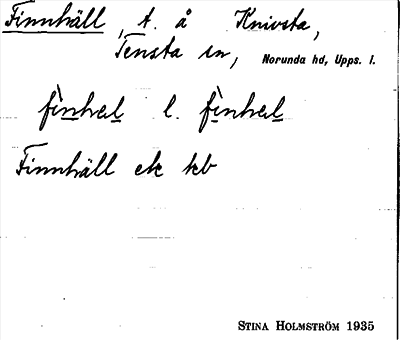 Finnhäll, t. å Knivsta,
Tensta sn, Norunda hd, Upps. l.
finhɛl l. finhɛl
Finnhäll ek kb
STINA HOLMSTRÖM 1935